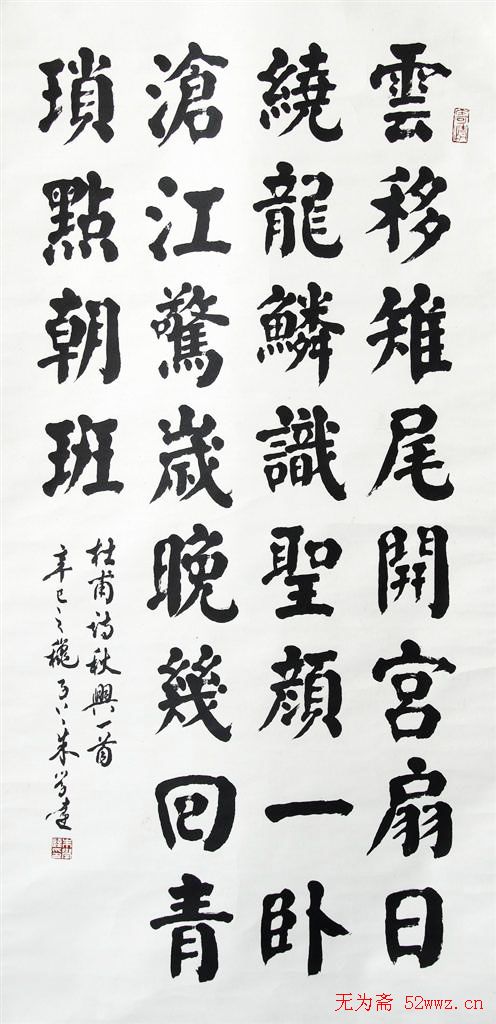 雲移雉尾開宮扇日
繞龍鱗識聖顔一卧
滄江驚歲晚幾回青
瑣點朝班
杜甫詩秋興一首
辛巳之穐 朱學達
无为斋 52wwz.cn